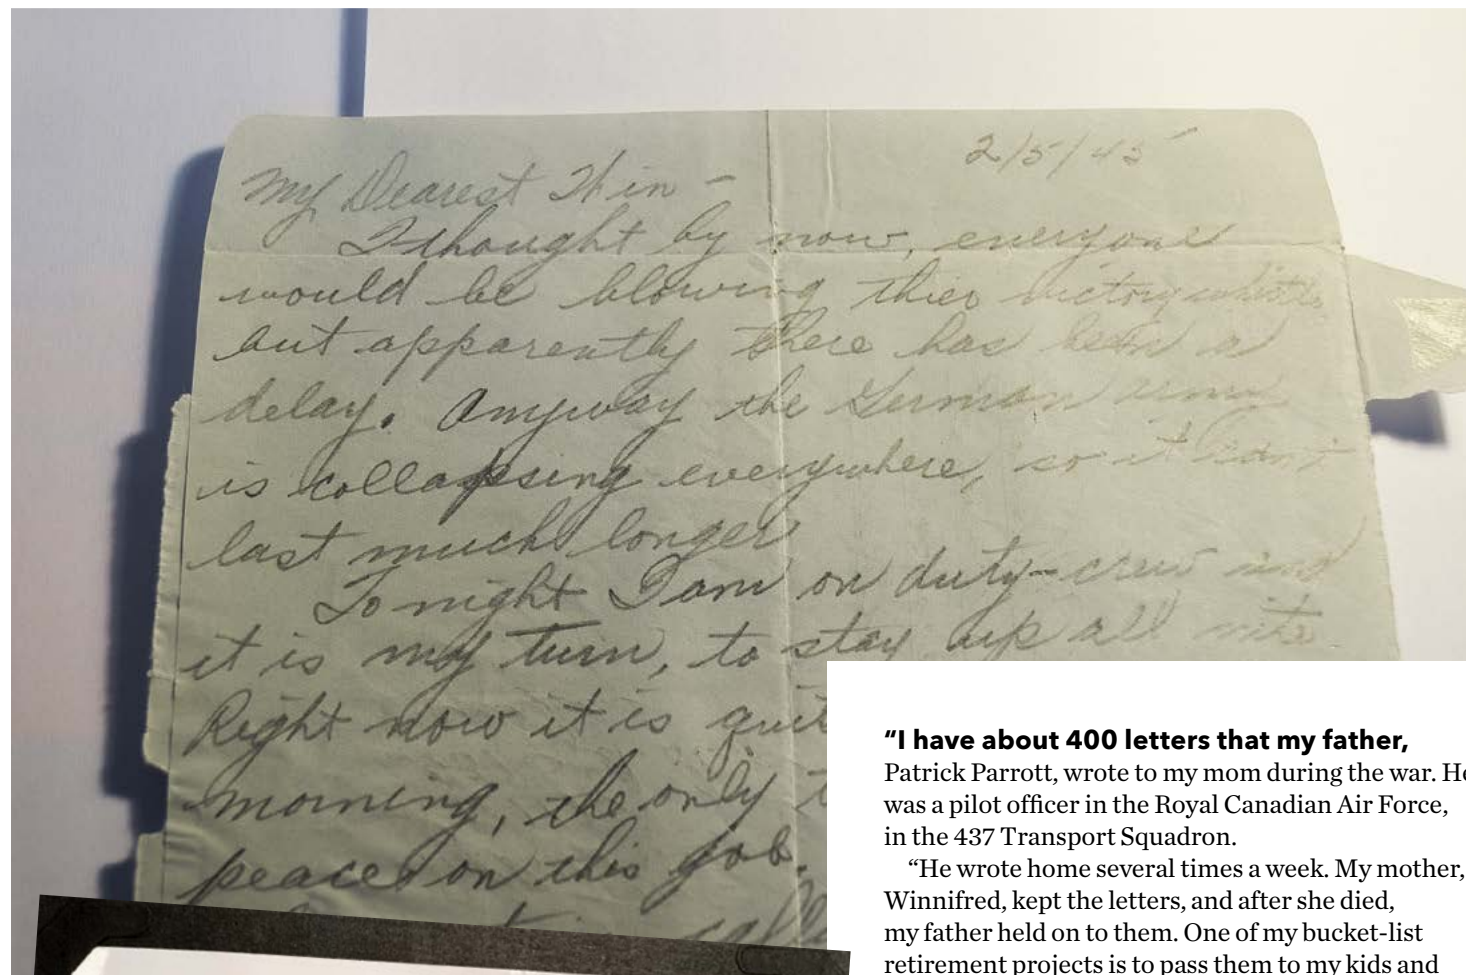 2/5/45
My Dearest Thin -
I thought by now, everyone
would be blowing thier victory whistle
but apparently there has been a
delay. Anyway the German army
is collapsing everywhere, so it can't
last much longer
To night I am on duty-crew and
it is my turn, to stay up all nite.
Right now it is
morning, the only
peace on this job.
"I have about 400 letters that my father,
Patrick Parrott, wrote to my mom during the war. He
was a pilot officer in the Royal Canadian Air Force,
in the 437 Transport Squadron.
"He wrote home several times a week. My mother,
Winnifred, kept the letters, and after she died,
my father held on to them. One of my bucket-list
retirement projects is to pass them to my kids and